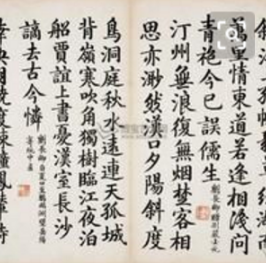 孤帆影草
萬里情東道若逢相識問
青袍今已誤儒生 劉長卿贈別嚴士元
汀洲無浪復無煙楚客相
思亦渺然漢口夕陽斜度
鳥洞庭秋水遠連天孤城
背嶺寒吹角獨樹臨江夜泊
船賈誼上書憂漢室長沙
謫去古今憐 劉長卿自夏口至鸚鵡洲望岳陽
寄阮中丞
央月曉度疎鐘鳳輦時